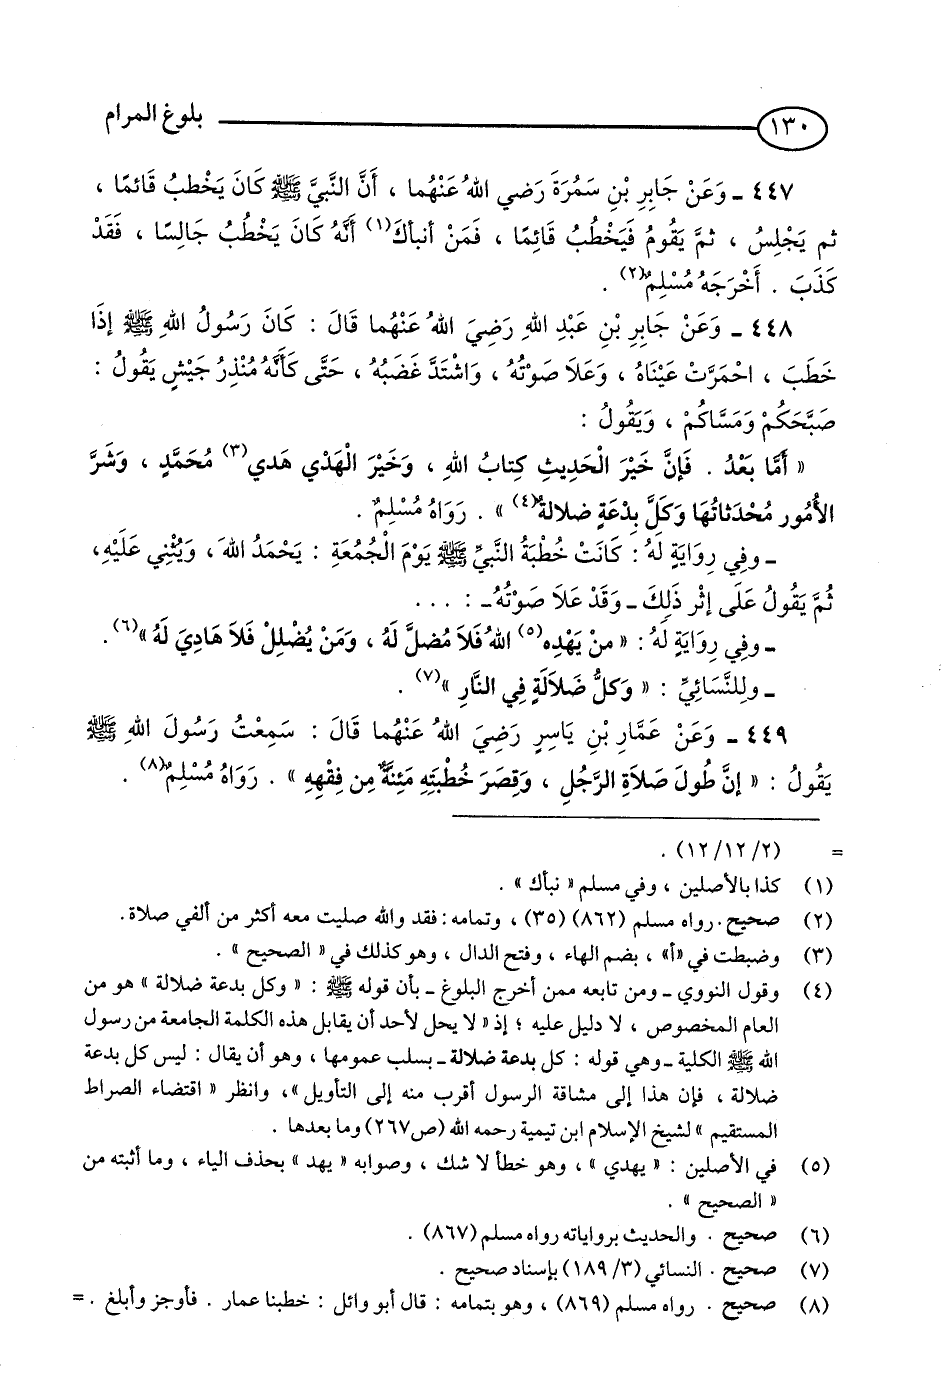 ١٣٠ بلوغ المرام
٤٤٧ ـ وَعَنْ جَابِرِ بْنِ سَمُرَةَ رَضي اللهُ عَنْهُما ، أَنَّ النَّبِيَّ ﷺ كَانَ يَخْطبُ قَائِمًا ،
ثم يَجْلِسُ ، ثمَّ يَقُومُ فَيَخْطُبُ قَائِمًا ، فَمَنْ أنبأكَ(١) أَنَّهُ كَانَ يَخْطُبُ جَالِسًا ، فَقَدْ
كَذَبَ . أَخْرَجَهُ مُسْلِمٌ(٢) .
٤٤٨ ـ وَعَنْ جَابِرِ بْنِ عَبْدِ اللهِ رَضِيَ اللهُ عَنْهُما قَالَ : كَانَ رَسُولُ اللهِ ﷺ إذَا
خَطَبَ ، احْمَرَّتْ عَيْنَاهُ ، وَعَلَا صَوْتُهُ ، وَاشْتَدَّ غَضَبُهُ ، حَتَّى كَأَنَّهُ مُنْذِرُ جَيْشٍ يَقُولُ :
صَبَّحَكُمْ وَمَسَّاكُمْ ، وَيَقُولُ :
« أَمَّا بَعْدُ . فَإِنَّ خَيْرَ الْحَدِيثِ كِتَابُ اللهِ ، وَخَيْرَ الْهَدْيِ هَدي(٣) مُحَمَّدٍ ، وَشَرَّ
الأُمُورِ مُحْدَثَاتُهَا وَكَلَّ بِدْعَةٍ ضلالةٌ(٤) » . رَوَاهُ مُسْلِمٌ .
ـ وفِي رِوَايَةٍ لَهُ : كَانَتْ خُطْبَةُ النَّبيِّ ﷺ يَوْمَ الْجُمُعَةِ : يَحْمَدُ اللهَ ، وَيُثْنِي عَلَيْهِ،
ثُمَّ يَقُولُ عَلَى إثْرِ ذَلِكَ ـ وَقَدْ عَلَا صَوْتُهُ ـ : . . .
ـ وفِي رِوَايَةٍ لَهُ : « منْ يَهْدِه(٥) اللهُ فَلَا مُضلَّ لَهُ ، وَمَنْ يُضْلِلْ فَلَا هَادِيَ لَهُ »(٦) .
ـ ولِلنَّسَائِيِّ : « وَكلُّ ضَلَالَةٍ فِي النَّارِ »(٧) .
٤٤٩ ـ وَعَنْ عَمَّارِ بْنِ يَاسِرٍ رَضِيَ اللهُ عَنْهُما قَالَ : سَمِعْتُ رَسُولَ اللهِ ﷺ
يَقُولُ : « إنَّ طُولَ صَلَاةِ الرَّجُلِ ، وَقِصَرَ خُطْبَتِهِ مَئِنَّةٌ مِن فِقْهِهِ » . رَوَاهُ مُسْلِمٌ(٨) .
= (١٢/١٢/٢) .
(١) كذا بالأصلين ، وفي مسلم « نبأك » .
(٢) صحيح . رواه مسلم (٨٦٢) (٣٥) ، وتمامه : فقد والله صليت معه أكثر من ألفي صلاة .
(٣) وضبطت في «أ» ، بضم الهاء ، وفتح الدال ، وهو كذلك في « الصحيح » .
(٤) وقول النووي ـ ومن تابعه ممن أخرج البلوغ ـ بأن قوله ﷺ : « وكل بدعة ضلالة » هو من
العام المخصوص ، لا دليل عليه ؛ إذ « لا يحل لأحد أن يقابل هذه الكلمة الجامعة من رسول
الله ﷺ الكلية ـ وهي قوله : كل بدعة ضلالة ـ بسلب عمومها ، وهو أن يقال : ليس كل بدعة
ضلالة ، فإن هذا إلى مشاقة الرسول أقرب منه إلى التأويل »، وانظر « اقتضاء الصراط
المستقيم » لشيخ الإسلام ابن تيمية رحمه الله (ص٢٦٧) وما بعدها .
(٥) في الأصلين : « يهدي » ، وهو خطأ لا شك ، وصوابه « يهد » بحذف الياء ، وما أثبته من
« الصحيح » .
(٦) صحيح . والحديث برواياته رواه مسلم (٨٦٧) .
(٧) صحيح . النسائي (٣/ ١٨٩) بإسناد صحيح .
(٨) صحيح . رواه مسلم (٨٦٩) ، وهو بتمامه : قال أبو وائل : خطبنا عمار . فأوجز وأبلغ . =